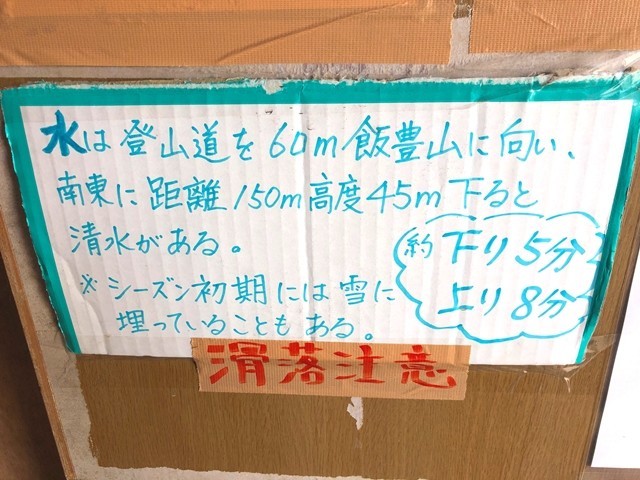 水は登山道を60m飯豊山に向い、
南東に距離150m高度45m下ると
清水がある。
約下り5分
上り8分
※シーズン初期には雪に
埋っていることもある。
滑落注意